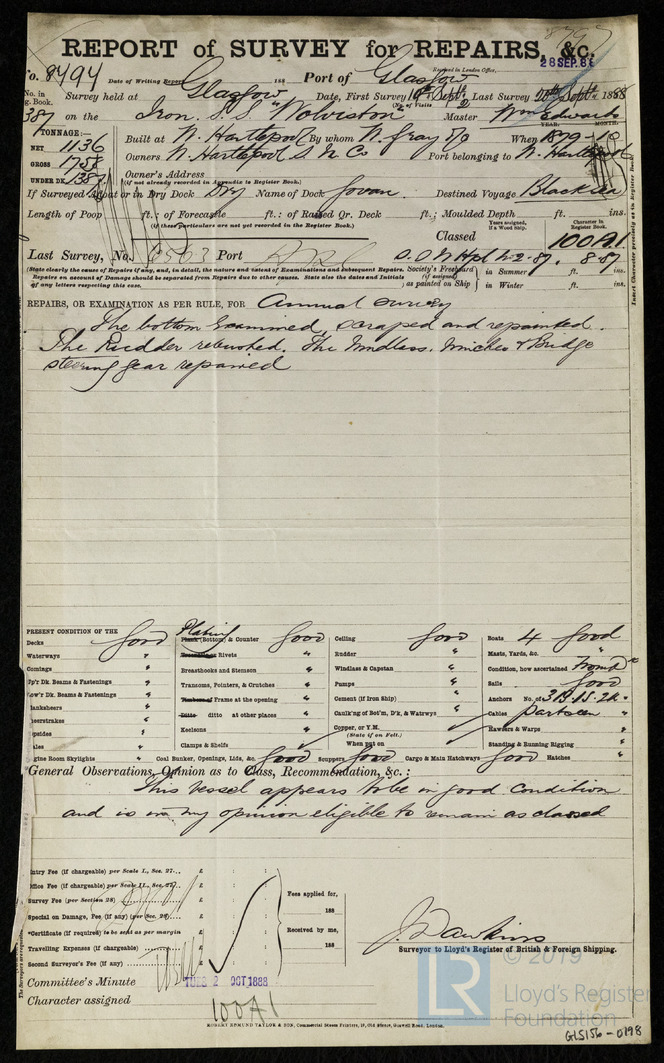 REPORT of SURVEY for REPAIRS, &c.
28 SEP. 88
No. 8494 Date of Writing Report 188 Port of Glasgow Received in London Office,
No. in Survey held at Glasgow Date, First Survey 10th Sept. Last Survey 20th Sept. 1888
g. Book. (No. of Visits 2
387 on the Iron S.S. "Wolviston" Master Wm Edwards
TONNAGE:— YEAR. MONTH.
NET 1136 Built at W. Hartlepool By whom W. Gray & Co When 1879-10
GROSS 1758 Owners W. Hartlepool S. N. Co Port belonging to W. Hartlepool
UNDER DK 1387 Owner's Address
(if not already recorded in Appendix to Register Book.)
If Surveyed Afloat or in Dry Dock Dry Name of Dock Govan. Destined Voyage Black Sea
Length of Poop ft.; of Forecastle ft.: of Raised Qr. Deck ft.; Moulded Depth ft. ins.
(if these particulars are not yet recorded in the Register Book.)
Years assigned, if a Wood Ship. Character in Register Book.
Classed 100A1
Last Survey, No. 6563 Port S.S. W Hpl No 2-87. 8-87
(State clearly the cause of Repairs if any, and, in detail, the nature and extent of Examinations and subsequent Repairs. Society's Freeboard (if assigned) in Summer ft. ins.
Repairs on account of Damage should be separated from Repairs due to other causes. State also the dates and Initials as painted on Ship in Winter ft. ins.
of any letters respecting this case.
Insert Character precisely as in Register Book.
REPAIRS, OR EXAMINATION AS PER RULE, FOR Annual Survey
The bottom examined, scraped and repainted.
The Rudder rebushed. The Windlass, Winches & Bridge
steering gear repaired
PRESENT CONDITION OF THE
Decks Good
Waterways "
Comings "
Up'r Dk. Beams & Fastenings "
Low'r Dk. Beams & Fastenings "
Planksheers "
eerstrakes "
opsides "
ales "
gine Room Skylights "
Plating
Plank (Bottom) & Counter Good
Rivets "
Breasthooks and Stemson "
Transoms, Pointers, & Crutches "
Timbers of Frame at the opening "
Ditto ditto at other places "
Keelsons "
Clamps & Shelfs
Coal Bunker, Openings, Lids, &c. Good
Ceiling Good
Rudder "
Windlass & Capstan "
Pumps "
Cement (if Iron Ship) "
Caulk'ng of Bot'm, D'k, & Watrwys "
Copper, or Y.M.
(State if on Felt.)
When put on
Scuppers Good Cargo & Main Hatchways Good Hatches "
Boats 4 Good
Masts, Yards, &c. "
Condition, how ascertained From Dk
Sails Good
Anchors No. of 3 B. 1 S. 2 K. "
Cables part seen "
Hawsers & Warps "
Standing & Running Rigging "
General Observations, Opinion as to Class, Recommendation, &c. :
This vessel appears to be in good condition
and is in my opinion eligible to remain as classed
Entry Fee (if chargeable) per Scale I., Sec. 27... £ : :
Office Fee (if chargeable) per Scale II., Sec. 27... £ : :
Survey Fee (per Section 28) £ : :
Special on Damage, Fee (if any) (per Sec. 28) £ : :
*Certificate (if required) to be sent as per margin
Travelling Expenses (if chargeable) £ : :
Second Surveyor's Fee (if any) £ : :
Fees applied for,
188
Received by me,
188
J. Dawkins
Surveyor to Lloyd's Register of British & Foreign Shipping.
Committee's Minute TUES 2 OCT 1888
Character assigned 100A1
ROBERT EDMUND TAYLOR & SON, Commercial Steam Printers, 19, Old Street, Goswell Road, London.
LR
© 2019
Lloyd's Register
Foundation
GLS156-0198